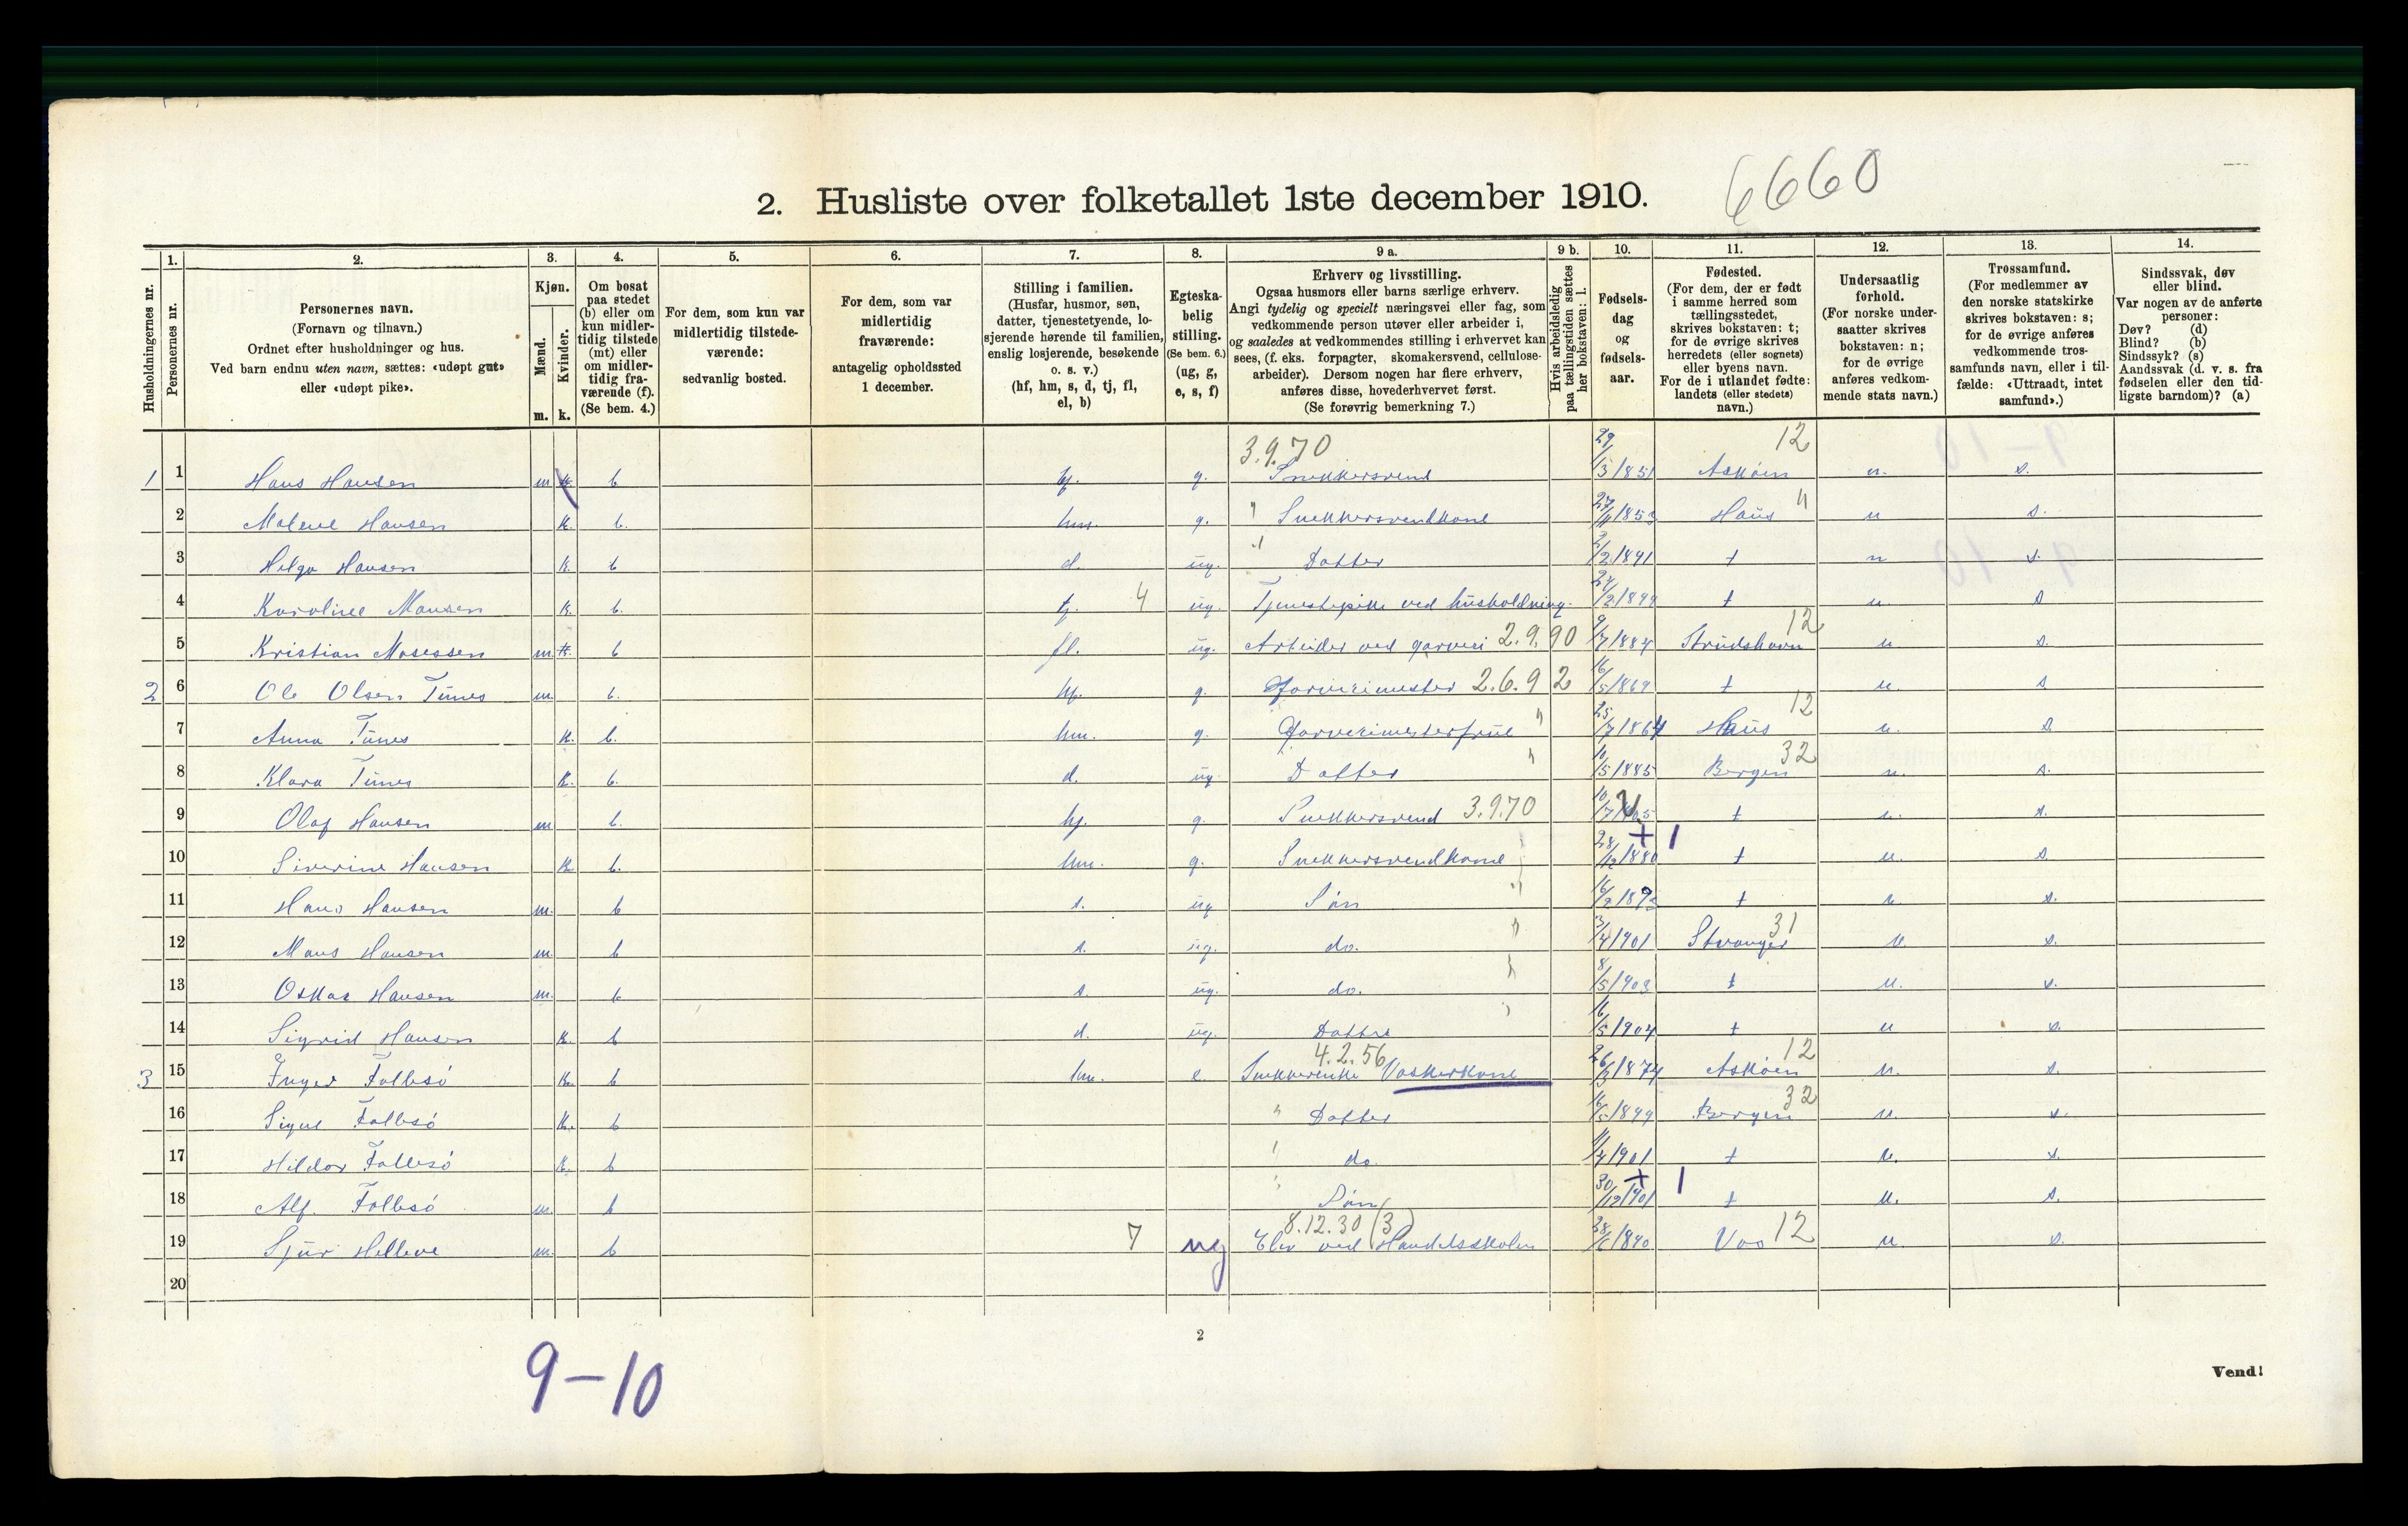 2. Husliste over folketallet 1ste december 1910. 6660
Husholdningernes nr.
1. Personernes nr.
2. Personernes navn.
(Fornavn og tilnavn.)
Ordnet efter husholdninger og hus.
Ved barn endnu uten navn, sættes: «udøpt gut»
eller «udøpt pike».
3. Kjøn.
Mænd. m.
Kvinder. k.
4. Om bosat
paa stedet
(b) eller om
kun midler-
tidig tilstede
(mt) eller
om midler-
tidig fra-
værende (f).
(Se bem. 4.)
5. For dem, som kun var
midlertidig tilstede-
værende:
sedvanlig bosted.
6. For dem, som var
midlertidig
fraværende:
antagelig opholdssted
1 december.
7. Stilling i familien.
(Husfar, husmor, søn,
datter, tjenestetyende, lo-
sjerende hørende til familien,
enslig losjerende, besøkende
o. s. v.)
(hf, hm, s, d, tj, fl,
el, b)
8. Egteska-
belig
stilling.
(Se bem. 6.)
(ug, g,
e, s, f)
9 a. Erhverv og livsstilling.
Ogsaa husmors eller barns særlige erhverv.
Angi tydelig og specielt næringsvei eller fag, som
vedkommende person utøver eller arbeider i,
og saaledes at vedkommendes stilling i erhvervet kan
sees, (f. eks. forpagter, skomakersvend, cellulose-
arbeider). Dersom nogen har flere erhverv,
anføres disse, hovederhvervet først.
(Se forøvrig bemerkning 7.)
9 b. Hvis arbeidsledig
paa tællingstiden sættes
her bokstaven: l.
10. Fødsels-
dag
og
fødsels-
aar.
11. Fødested.
(For dem, der er født
i samme herred som
tællingsstedet,
skrives bokstaven: t;
for de øvrige skrives
herredets (eller sognets)
eller byens navn.
For de i utlandet fødte:
landets (eller stedets)
navn.)
12. Undersaatlig
forhold.
(For norske under-
saatter skrives
bokstaven: n;
for de øvrige
anføres vedkom-
mende stats navn.)
13. Trossamfund.
(For medlemmer av
den norske statskirke
skrives bokstaven: s;
for de øvrige anføres
vedkommende tros-
samfunds navn, eller i til-
fælde: «Uttraadt, intet
samfund».)
14. Sindssvak, døv
eller blind.
Var nogen av de anførte
personer:
Døv? (d)
Blind? (b)
Sindssyk? (s)
Aandssvak (d. v. s. fra
fødselen eller den tid-
ligste barndom)? (a)
3.9.70 12
1 1 Hans Hansen m. b hf. g. Snekkersvend 29/3 1851 Askøen n. s.
2 Malene Hansen k. b. hm. g. " Snekkersvendkone 1853 Haus " n s.
3 Helga Hansen k. b d. ug. " Datter 1891 t n s.
4 Karoline Monsen k. b. tj. 4 ug. Tjenestepike ved husholdning. t n. s
5 Kristian Mosessen m. b fl. ug. Arbeider ved garveri 2.9.90 9/7 1884 12 n s.
2 6 Ole Olsen Tunes m. b. hf. g. Garverimester 2.6.92 16/5 1869 t n. s
7 Anna Tunes k. b. hm. g. Garverimesterfrue " 25/7 1864 Haus 12 n. s
8 Klara Tunes k. b. d. ug. Datter " 10/5 1885 Bergen 32 n. s.
9 Olaf Hansen m b. hf. g. Snekkersvend 3.9.70 t n. s.
10 Siverine Hansen k b. hm. g. Snekkersvendkone 28/12 1880 + 1 t n. s
11 Hans Hansen m. b s. ug Søn " t n s.
12 Mons Hansen m. b s. ug. do. " 3/4 1901 Stvanger 31 n. s.
13 Oskar Hansen m. b s. ug. do. " 8/5 1903 t n. s.
14 Sigrid Hansen k. b d. ug. Datter 16/5 1904 t n s.
4.2.56 12
3 15 Inger Follesø k. b hm. e. Snekkerenke Vaskerkone 1874 Askøen n. s.
16 Signe Follesø k. b " Datter 16/5 1899 Bergen 32 n. s.
17 Hildor Follesø k. b " do. 11/4 1901 t n. s.
18 Alf. Follesø m. b Søn 30/12 1901 + 1 t n. s.
8.12.30 (3)
19 Sjur Helleve m. b 7 ug Elev ved Handelsskolen 28/6 1890 Vos 12 n. s.
20
2
9-10
Vend!